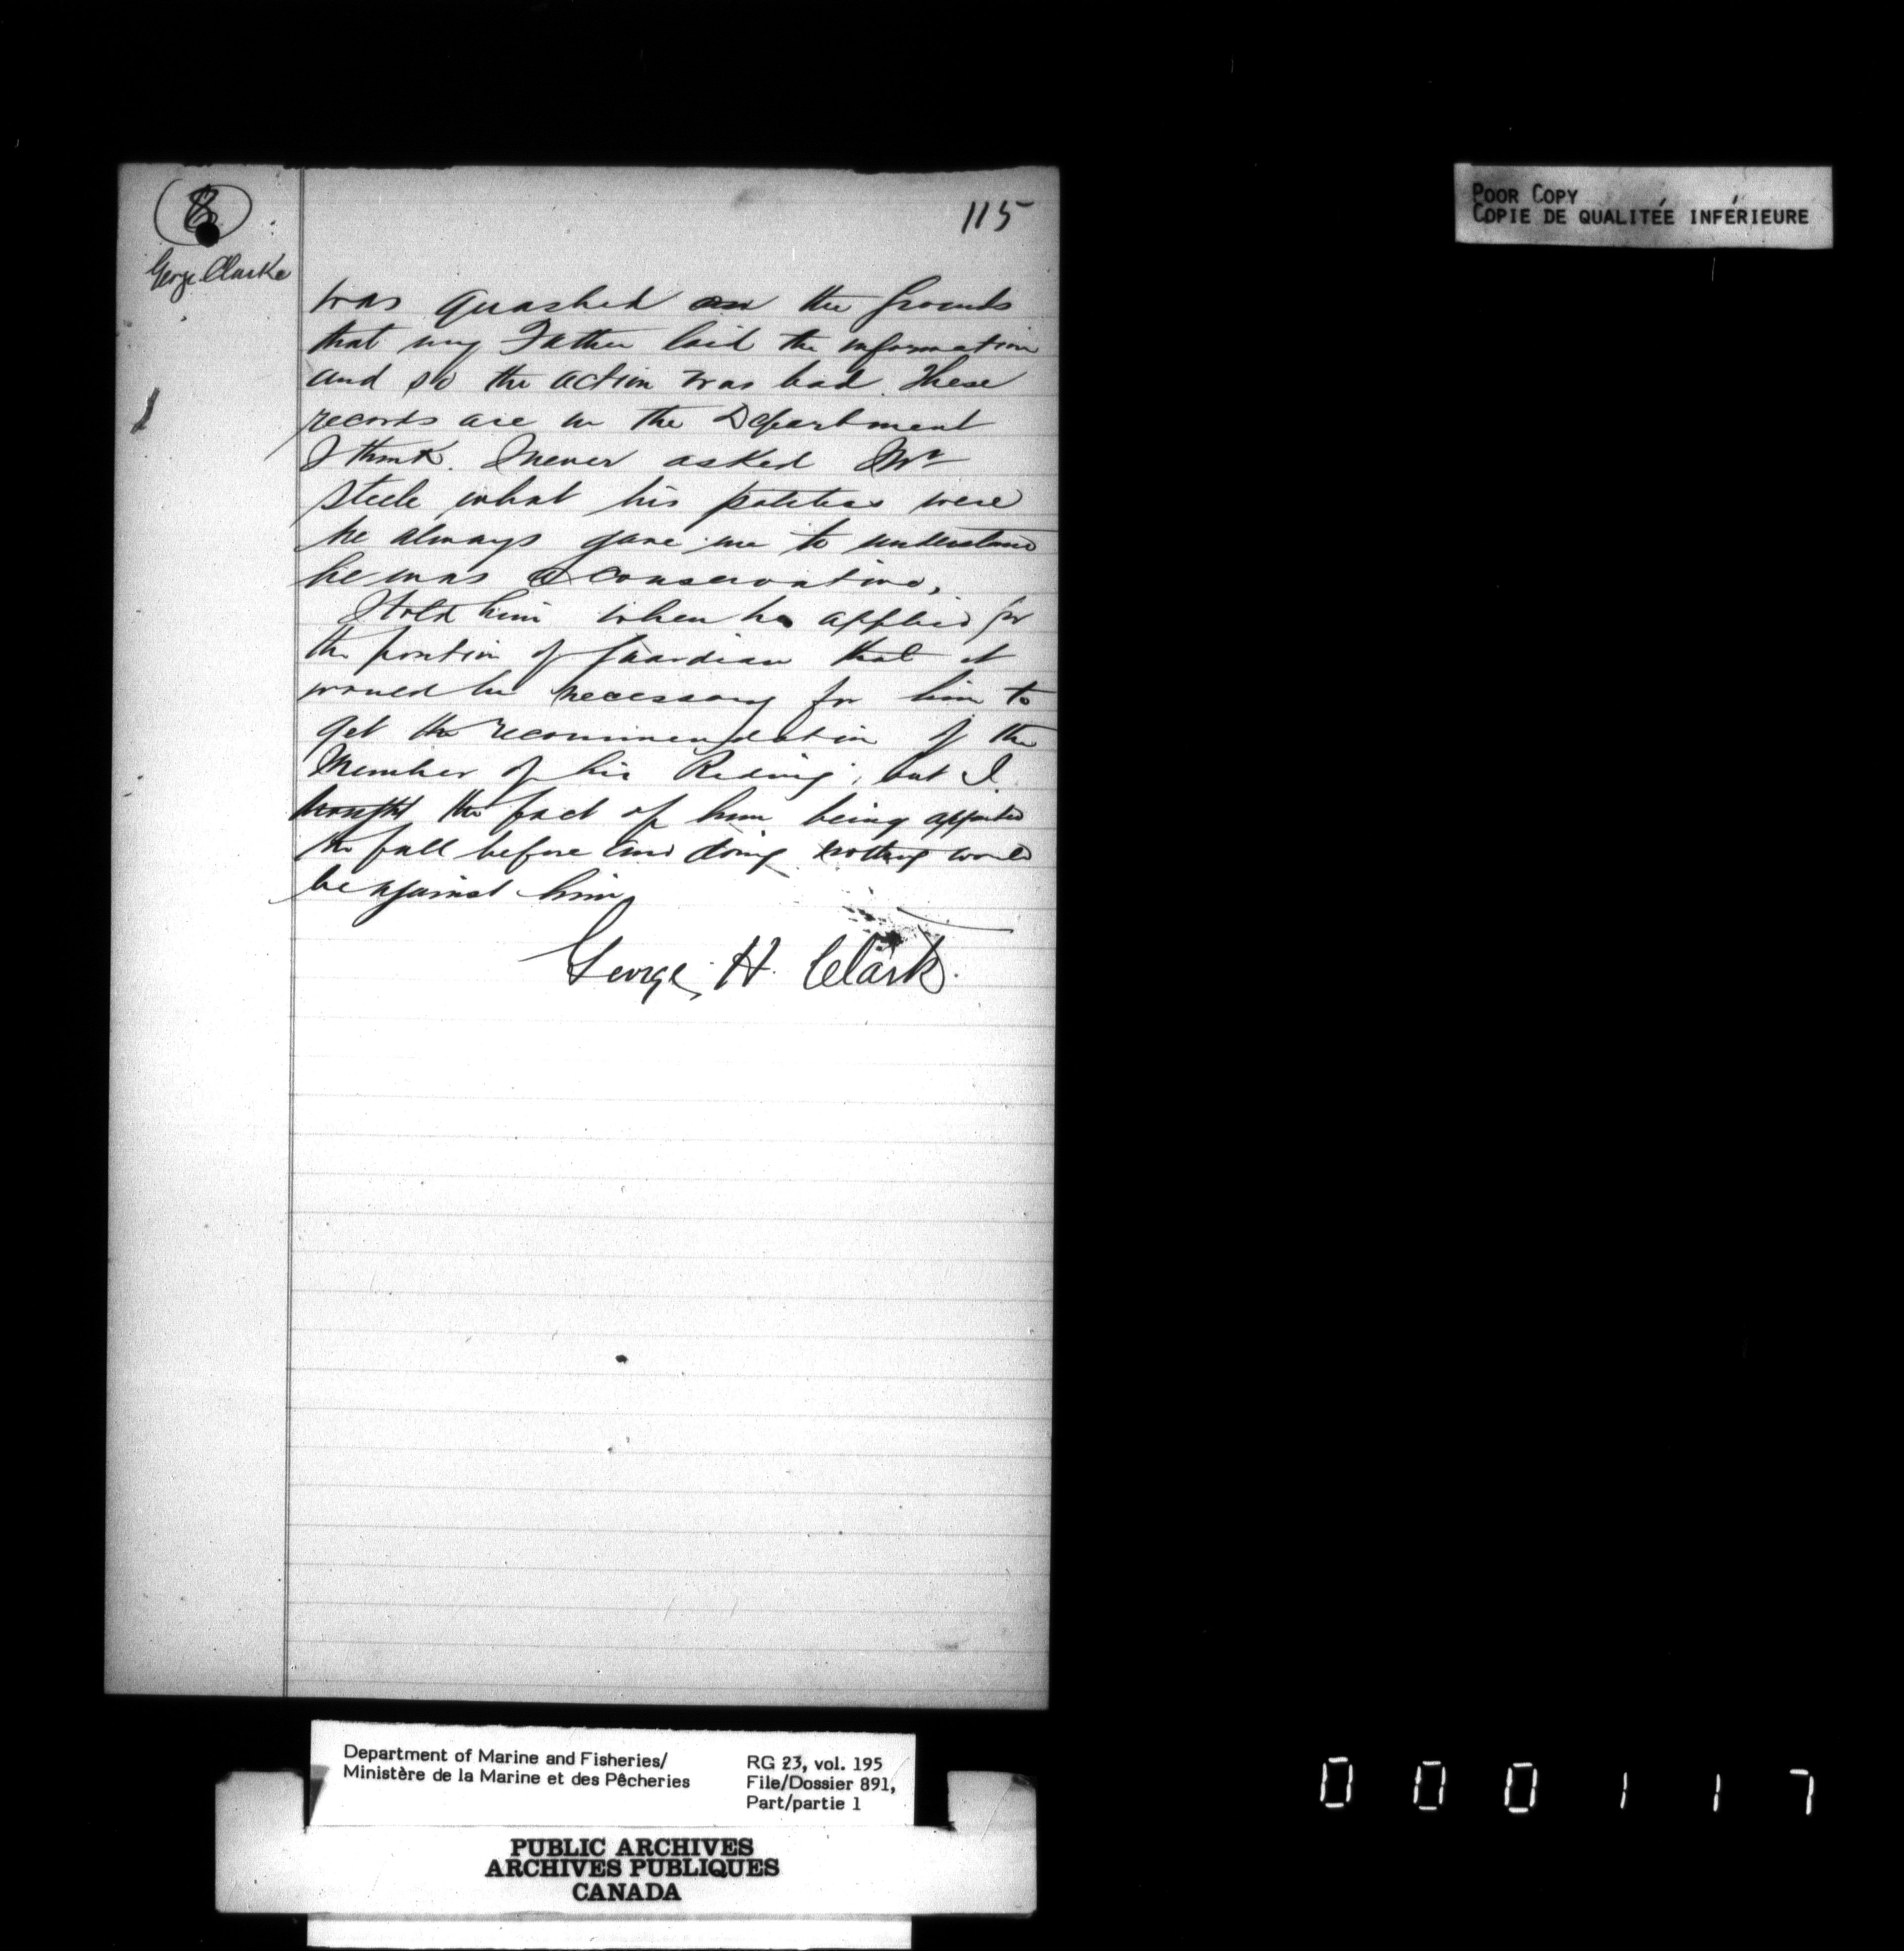 8
George Clarke
115
was quashed on the grounds
that my Father laid the information
and so the action was bad. These
records are in the Department
I think. I never asked Mr
Steele what his politics were
he always gave me to understand
he was a conservative,
I told him when he applied for
the position of Guardian that it
would be necessary for him to
get the recommendation of the
Member of his Riding, but I
thought the fact of him being appointed
the fall before and doing nothing would
be against him
George H. Clark.
POOR COPY
COPIE DE QUALITÉE INFÉRIEURE
Department of Marine and Fisheries/
Ministère de la Marine et des Pêcheries
RG 23, vol. 195
File/Dossier 891,
Part/partie 1
PUBLIC ARCHIVES
ARCHIVES PUBLIQUES
CANADA
000117